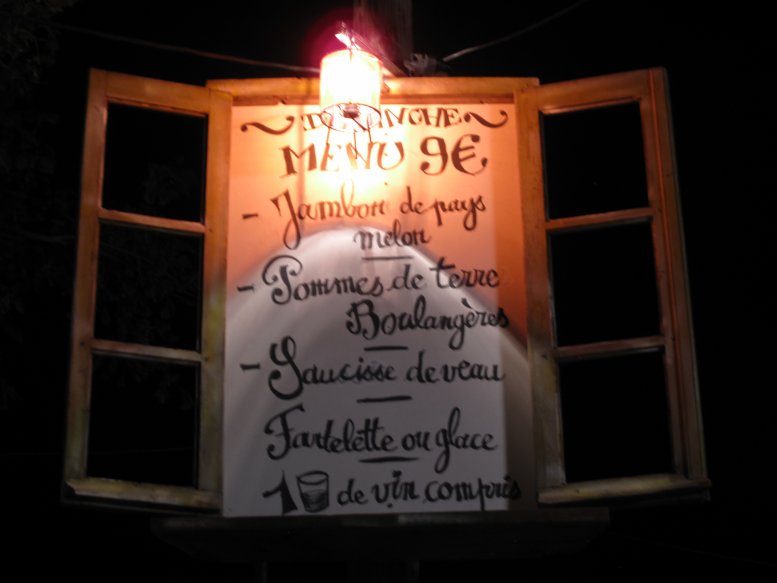 ~ DIMANCHE ~
MENU 9€
- Jambon de pays
melon
- Pommes de terre
Boulangères
- Saucisse de veau
Tartelette ou glace
1 de vin compris